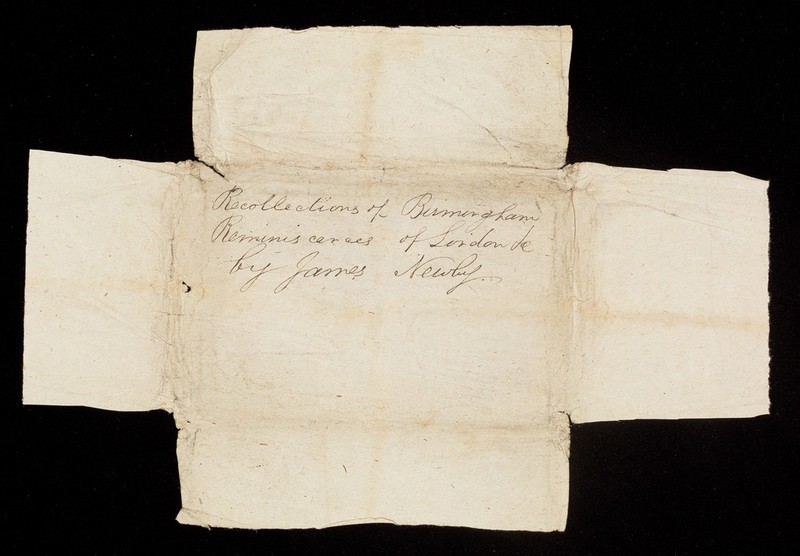 Recollections of Birmingham
Reminiscences of London &c
by James Newby